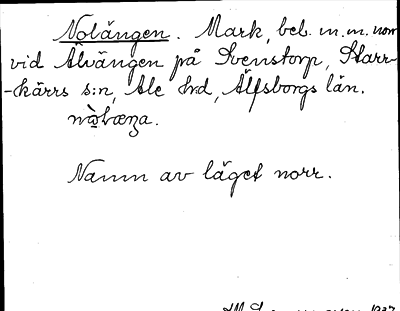 Nolängen. Mark, beb. m.m. norr
vid Älvängen på Svenstorp, Starr-
-kärrs s:n, Ale hrd, Älfsborgs län.
Namn av läget norr.